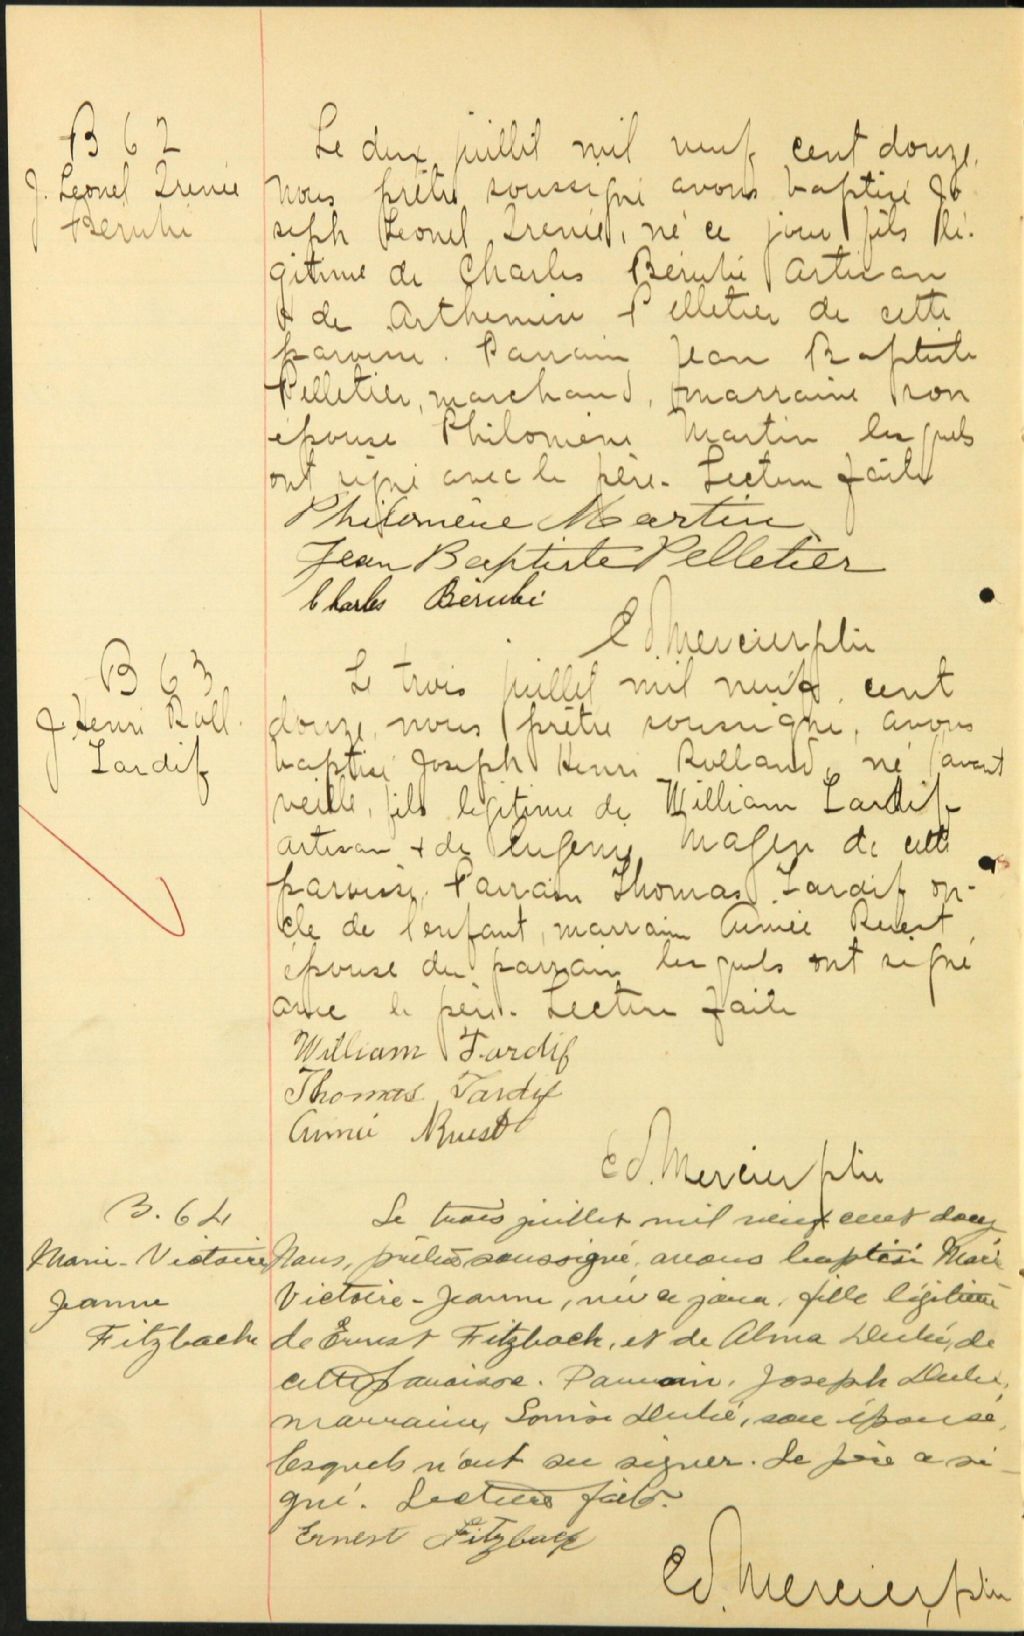 B 62
J. Leonel Irenée
Bérubé
Le deux juillet mil neuf cent douze,
nous prêtre soussigné avons baptisé Jo
seph Leonel Irenée, né ce jour fils lé-
gitime de Charles Bérubé artisan
& de Arthemise Pelletier de cette
paroisse. Parrain Jean Baptiste
Pelletier, marchand, marraine son
épouse Philomène Martin lesquels
ont signé avec le père. Lecture faite
Philomène Martin
Jean Baptiste Pelletier
Charles Bérubé
Ed. Mercier ptre
B 63
J. Henri Roll.
Tardif
Le trois juillet mil neuf cent
douze, nous prêtre soussigné, avons
baptisé Joseph Henri Rolland, né l'avant
veille, fils légitime de William Tardif
artisan & de Eugenie de cette
paroisse. Parrain Thomas Tardif on-
cle de l'enfant, marraine Aimée Ruest
épouse du parrain lesquels ont signé
avec le père. Lecture faite
William Tardif
Thomas Tardif
Aimée Ruest
Ed. Mercier ptre
B. 64
Marie-Victoire
Jeanne
Fitzbach
Le trois juillet mil neuf cent douze
Nous, prêtre soussigné, avons baptisé Marie
Victoire-Jeanne, née ce jour, fille légitime
de Ernest Fitzbach, et de Alma Dubé, de
cette paroisse. Parrain, Joseph Dubé,
marraine, Louise Dubé, son épouse,
lesquels n'ont su signer. Le père a si-
gné. Lecture faite.
Ernest Fitzback
Ed. Mercier, ptre